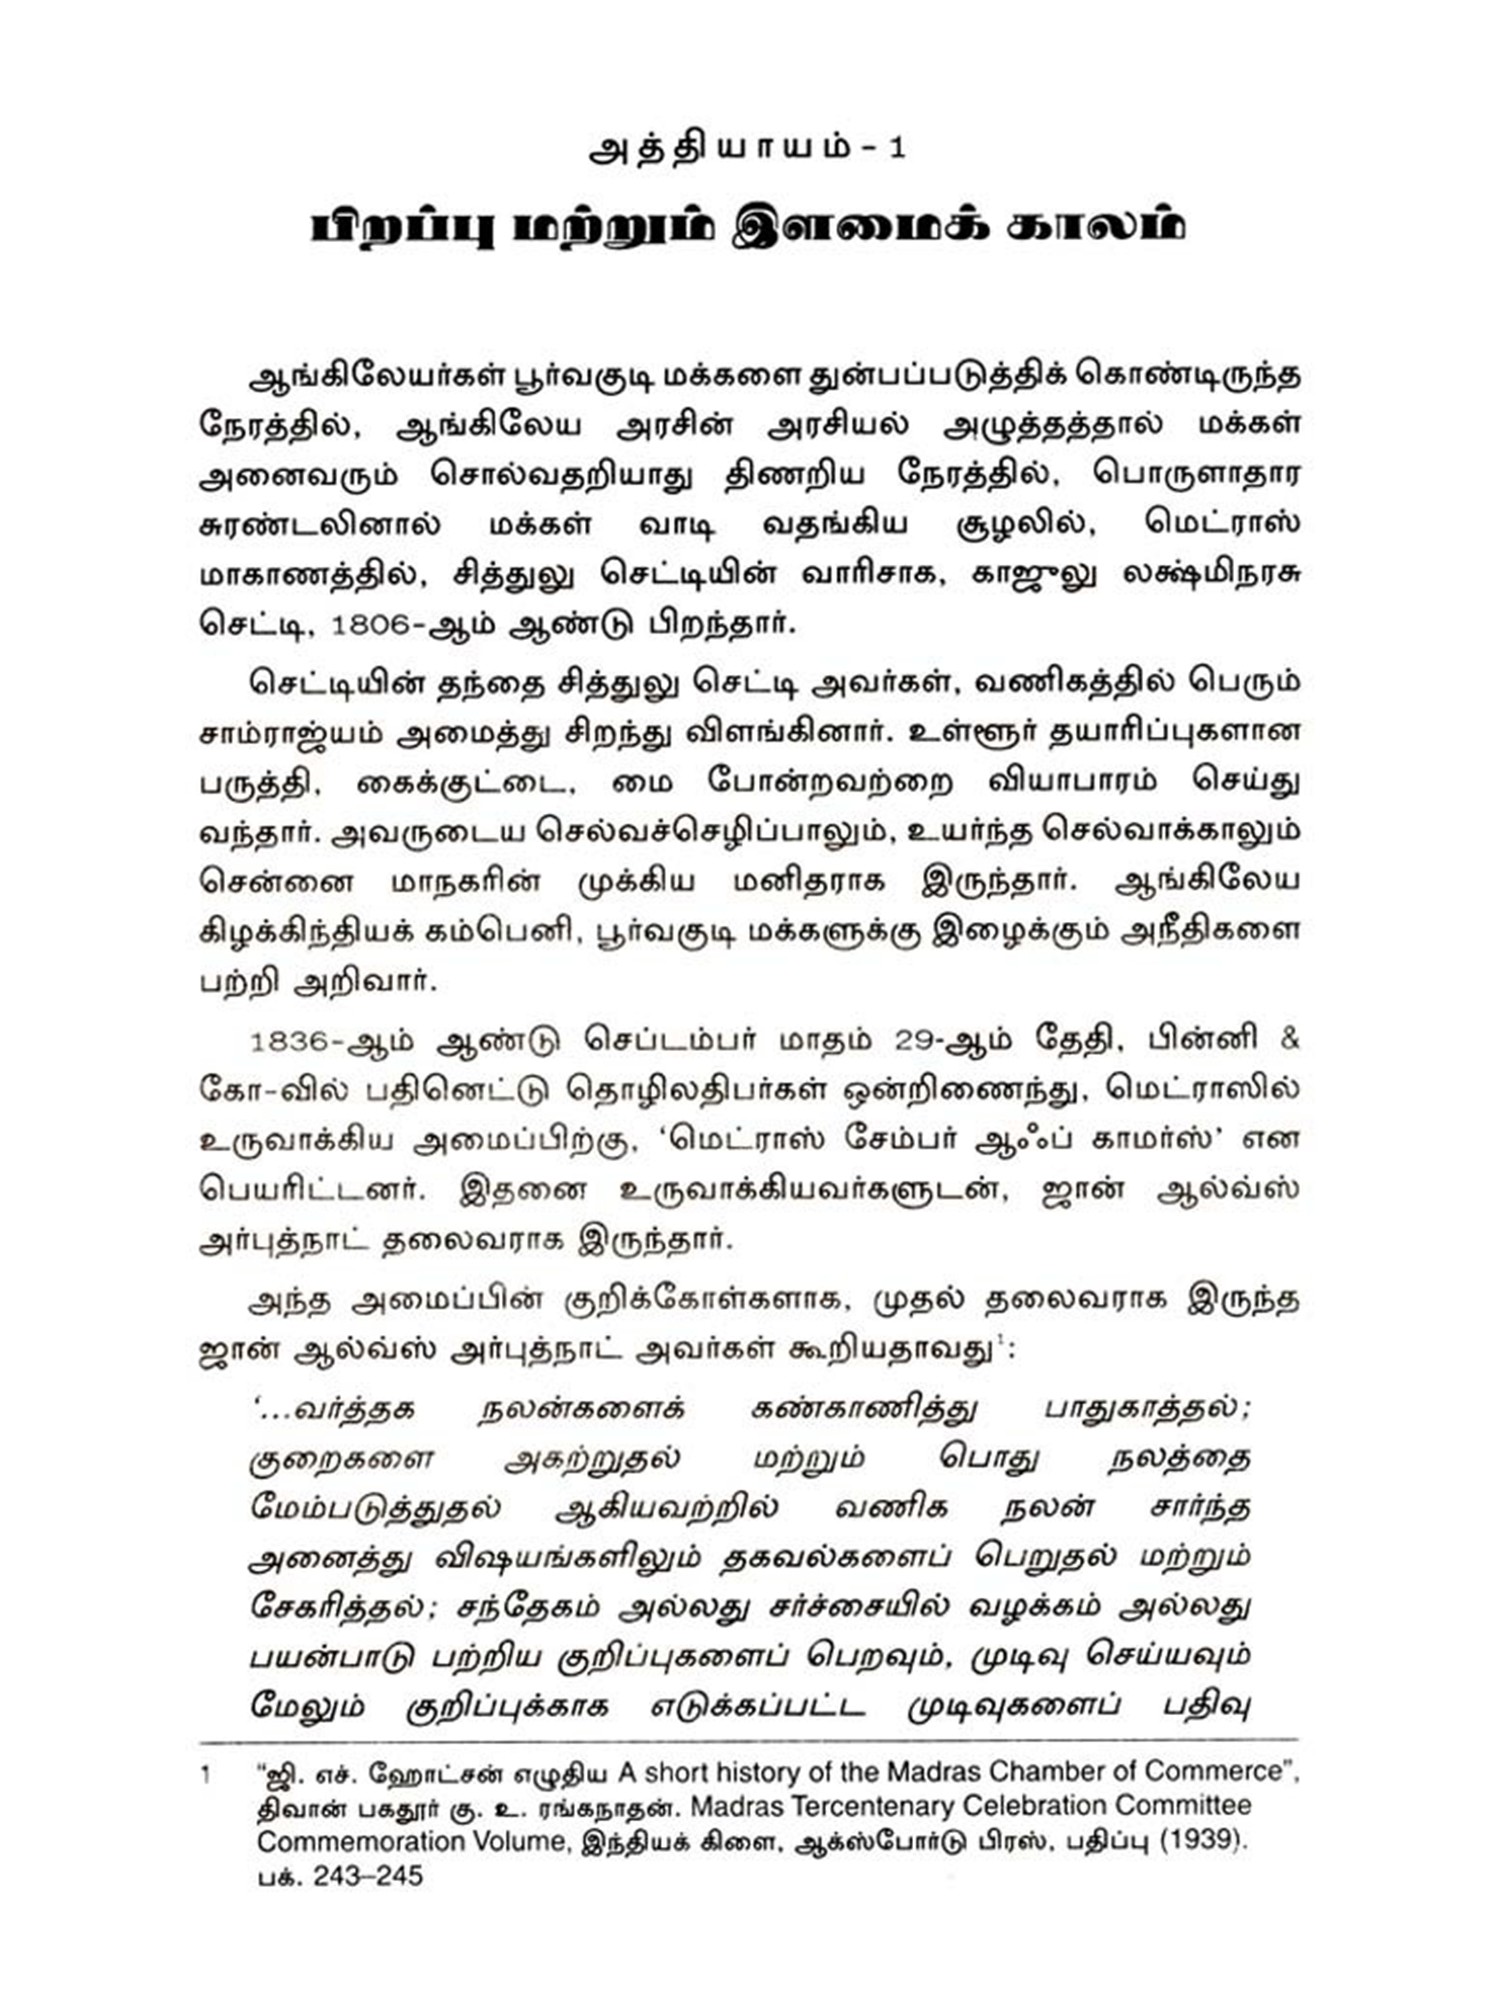 அத்தியாயம் - 1
பிறப்பு மற்றும் இளமைக் காலம்
ஆங்கிலேயர்கள் பூர்வகுடி மக்களை துன்பப்படுத்திக் கொண்டிருந்த
நேரத்தில், ஆங்கிலேய அரசின் அரசியல் அழுத்தத்தால் மக்கள்
அனைவரும் சொல்வதறியாது திணறிய நேரத்தில், பொருளாதார
சுரண்டலினால் மக்கள் வாடி வதங்கிய சூழலில், மெட்ராஸ்
மாகாணத்தில், சித்துலு செட்டியின் வாரிசாக, காஜுலு லக்ஷ்மிநரசு
செட்டி, 1806-ஆம் ஆண்டு பிறந்தார்.
செட்டியின் தந்தை சித்துலு செட்டி அவர்கள், வணிகத்தில் பெரும்
சாம்ராஜ்யம் அமைத்து சிறந்து விளங்கினார். உள்ளூர் தயாரிப்புகளான
பருத்தி, கைக்குட்டை, மை போன்றவற்றை வியாபாரம் செய்து
வந்தார். அவருடைய செல்வச்செழிப்பாலும், உயர்ந்த செல்வாக்காலும்
சென்னை மாநகரின் முக்கிய மனிதராக இருந்தார். ஆங்கிலேய
கிழக்கிந்தியக் கம்பெனி, பூர்வகுடி மக்களுக்கு இழைக்கும் அநீதிகளை
பற்றி அறிவார்.
1836-ஆம் ஆண்டு செப்டம்பர் மாதம் 29-ஆம் தேதி, பின்னி &
கோ-வில் பதினெட்டு தொழிலதிபர்கள் ஒன்றிணைந்து, மெட்ராஸில்
உருவாக்கிய அமைப்பிற்கு, ‘மெட்ராஸ் சேம்பர் ஆஃப் காமர்ஸ்’ என
பெயரிட்டனர். இதனை உருவாக்கியவர்களுடன், ஜான் ஆல்வ்ஸ்
அர்புத்நாட் தலைவராக இருந்தார்.
அந்த அமைப்பின் குறிக்கோள்களாக, முதல் தலைவராக இருந்த
ஜான் ஆல்வ்ஸ் அர்புத்நாட் அவர்கள் கூறியதாவது¹:
‘...வர்த்தக நலன்களைக் கண்காணித்து பாதுகாத்தல்;
குறைகளை அகற்றுதல் மற்றும் பொது நலத்தை
மேம்படுத்துதல் ஆகியவற்றில் வணிக நலன் சார்ந்த
அனைத்து விஷயங்களிலும் தகவல்களைப் பெறுதல் மற்றும்
சேகரித்தல்; சந்தேகம் அல்லது சர்ச்சையில் வழக்கம் அல்லது
பயன்பாடு பற்றிய குறிப்புகளைப் பெறவும், முடிவு செய்யவும்
மேலும் குறிப்புக்காக எடுக்கப்பட்ட முடிவுகளைப் பதிவு
1 “ஜி. எச். ஹோட்சன் எழுதிய A short history of the Madras Chamber of Commerce”,
திவான் பகதூர் கு. உ. ரங்கநாதன். Madras Tercentenary Celebration Committee
Commemoration Volume, இந்தியக் கிளை, ஆக்ஸ்போர்டு பிரஸ், பதிப்பு (1939).
பக். 243–245